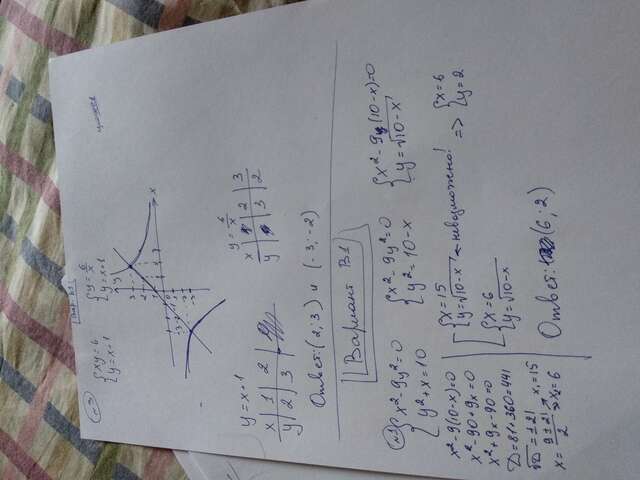 Вар. А1
№3
{xy=6
y=x+1
{y=6/x
y=x+1
y
3
2
1
-3 -2 -1 0 1 2 3 x
-1
-2
-3
y=x+1
x | 1 | 2
y | 2 | 3
y=6/x
x | 2 | 3
y | 3 | 2
Ответ: (2;3) и (-3;-2)
Вариант В1
№1
{x²-9y²=0
y²+x=10
{x²-9y²=0
y²=10-x
{x²-9(10-x)=0
y=√10-x
x²-9(10-x)=0
x²-90+9x=0
x²+9x-90=0
D=81+360=441
√D=±21
x=9±21/2 x₁=15
x₂=6
[{x=15
y=√10-x ← невозможно!
{x=6
y=√10-x
=> {x=6
y=2
Ответ: (6;2)